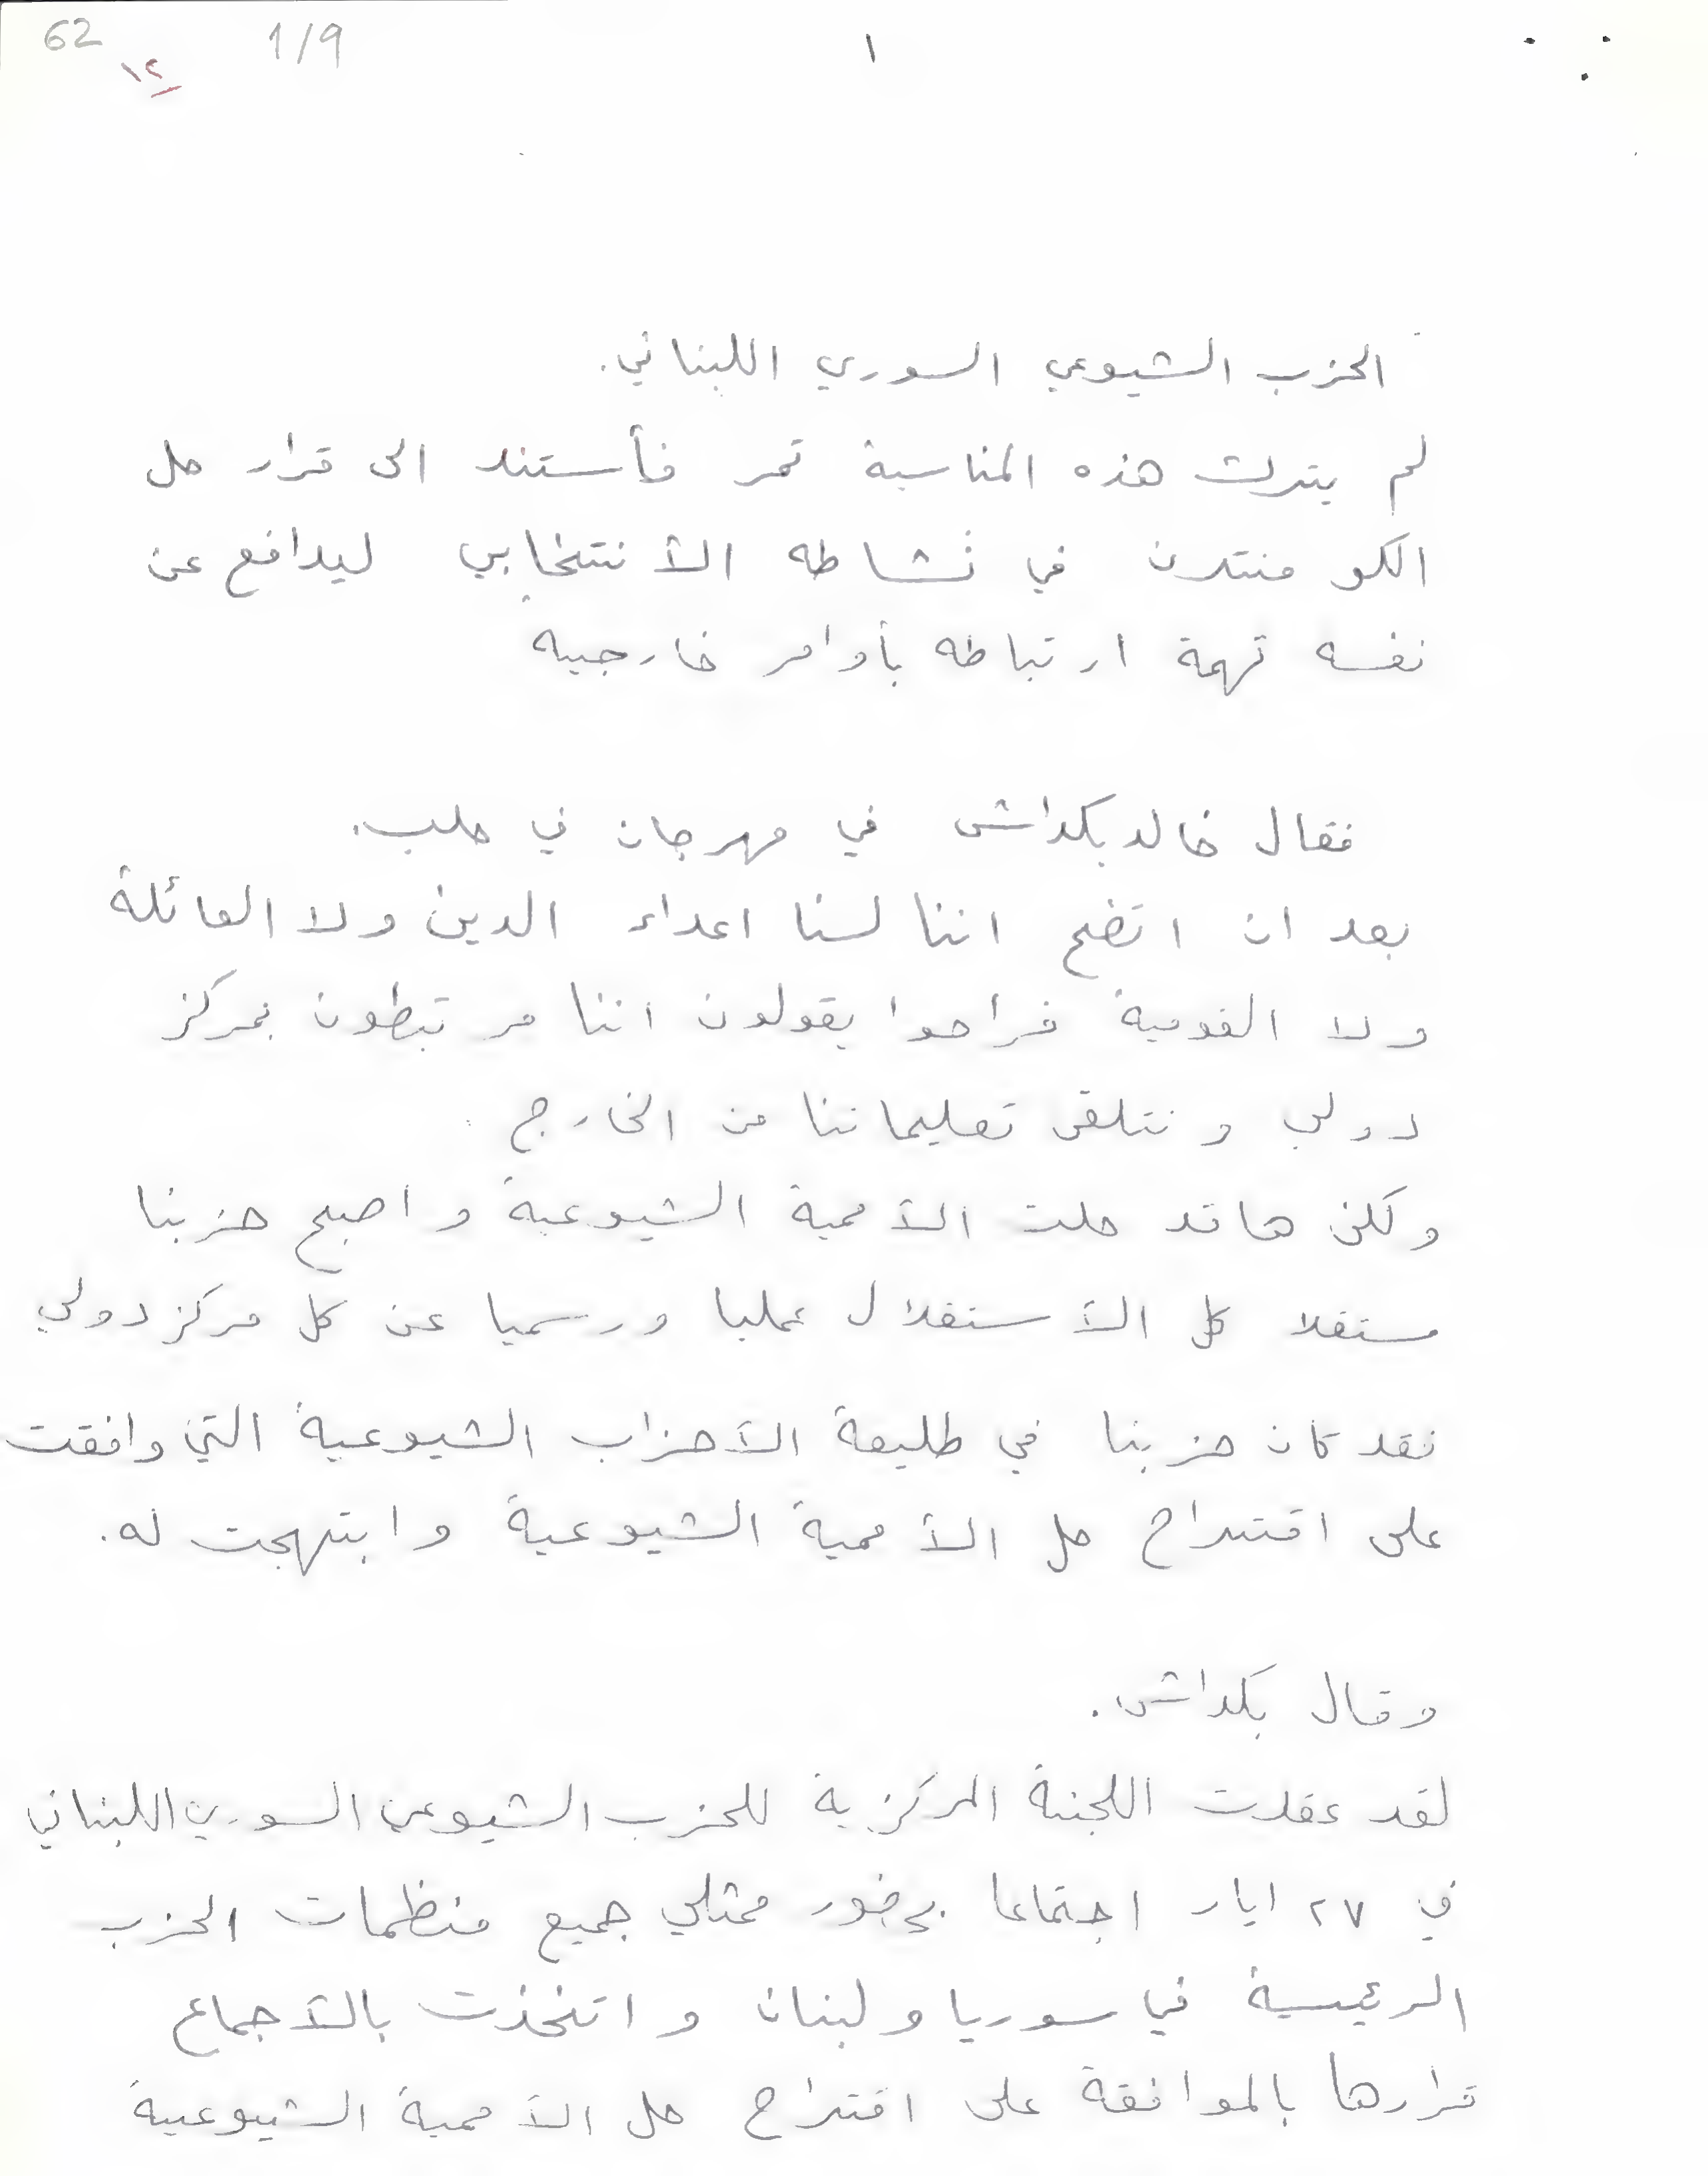 62
١٢
1/9
١
الحزب الشيوعي السوري اللبناني.
لم يترك هذه المناسبة تمر فأستند الى قرار حل
الكو منترن في نشاطه الأنتخابي ليدافع عن
نفسه تهمة ارتباطه بأوامر خارجيه
فقال خالد بكداش في مهرجان في حلب.
بعد ان اتضح اننا لسنا اعداء الدين ولا العائلة
ولا القومية فراحوا يقولون اننا مرتبطون بمركز
دولي ونتلقى تعليماتنا من الخارج
ولكن ها قد حلت الأممية الشيوعية واصبح حزبنا
مستقلا كل الأستقلال عمليا ورسميا عن كل مركز دولي
فقد كان حزبنا في طليعة الأحزاب الشيوعية التي وافقت
على اقتراح حل الأممية الشيوعية وابتهجت له.
وقال بكداش.
لقد عقدت اللجنة المركزية للحزب الشيوعي السوري اللبناني
في ٢٧ ايار اجتماعا بحضور ممثلي جميع منظمات الحزب
الرئيسية في سوريا ولبنان واتخذت بالأجماع
قرارها بالموافقة على اقتراح حل الأممية الشيوعية